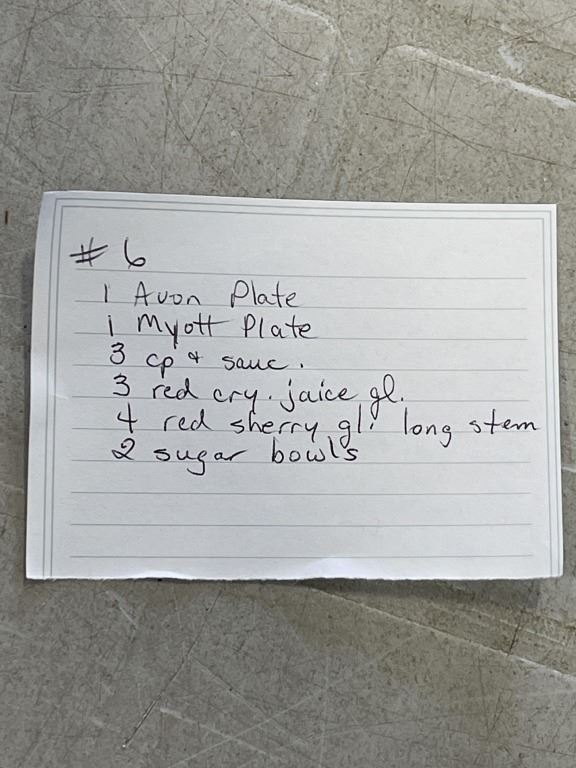 # 6
1 Avon Plate
1 Myott Plate
3 cp & sauc.
3 red cry. jaice gl.
4 red sherry gl. long stem
2 sugar bowls